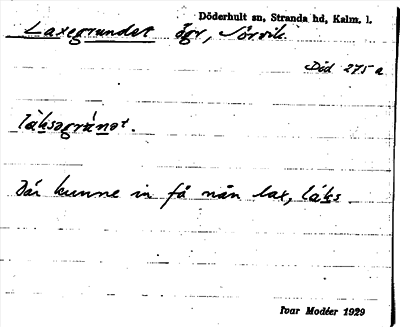 Döderhult sn, Stranda hd, Kalm. l.
Laxegrundet ögr, Sörvik.
Död 275 a
láksəgrànət.
Där kunne in få nån lax, láks.
Ivar Modéer 1929